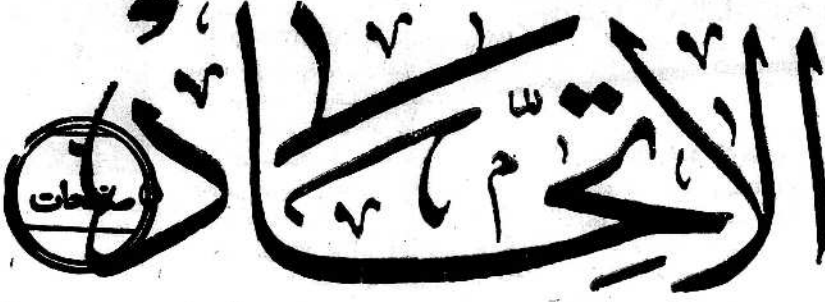 الاتحاد
صفحات